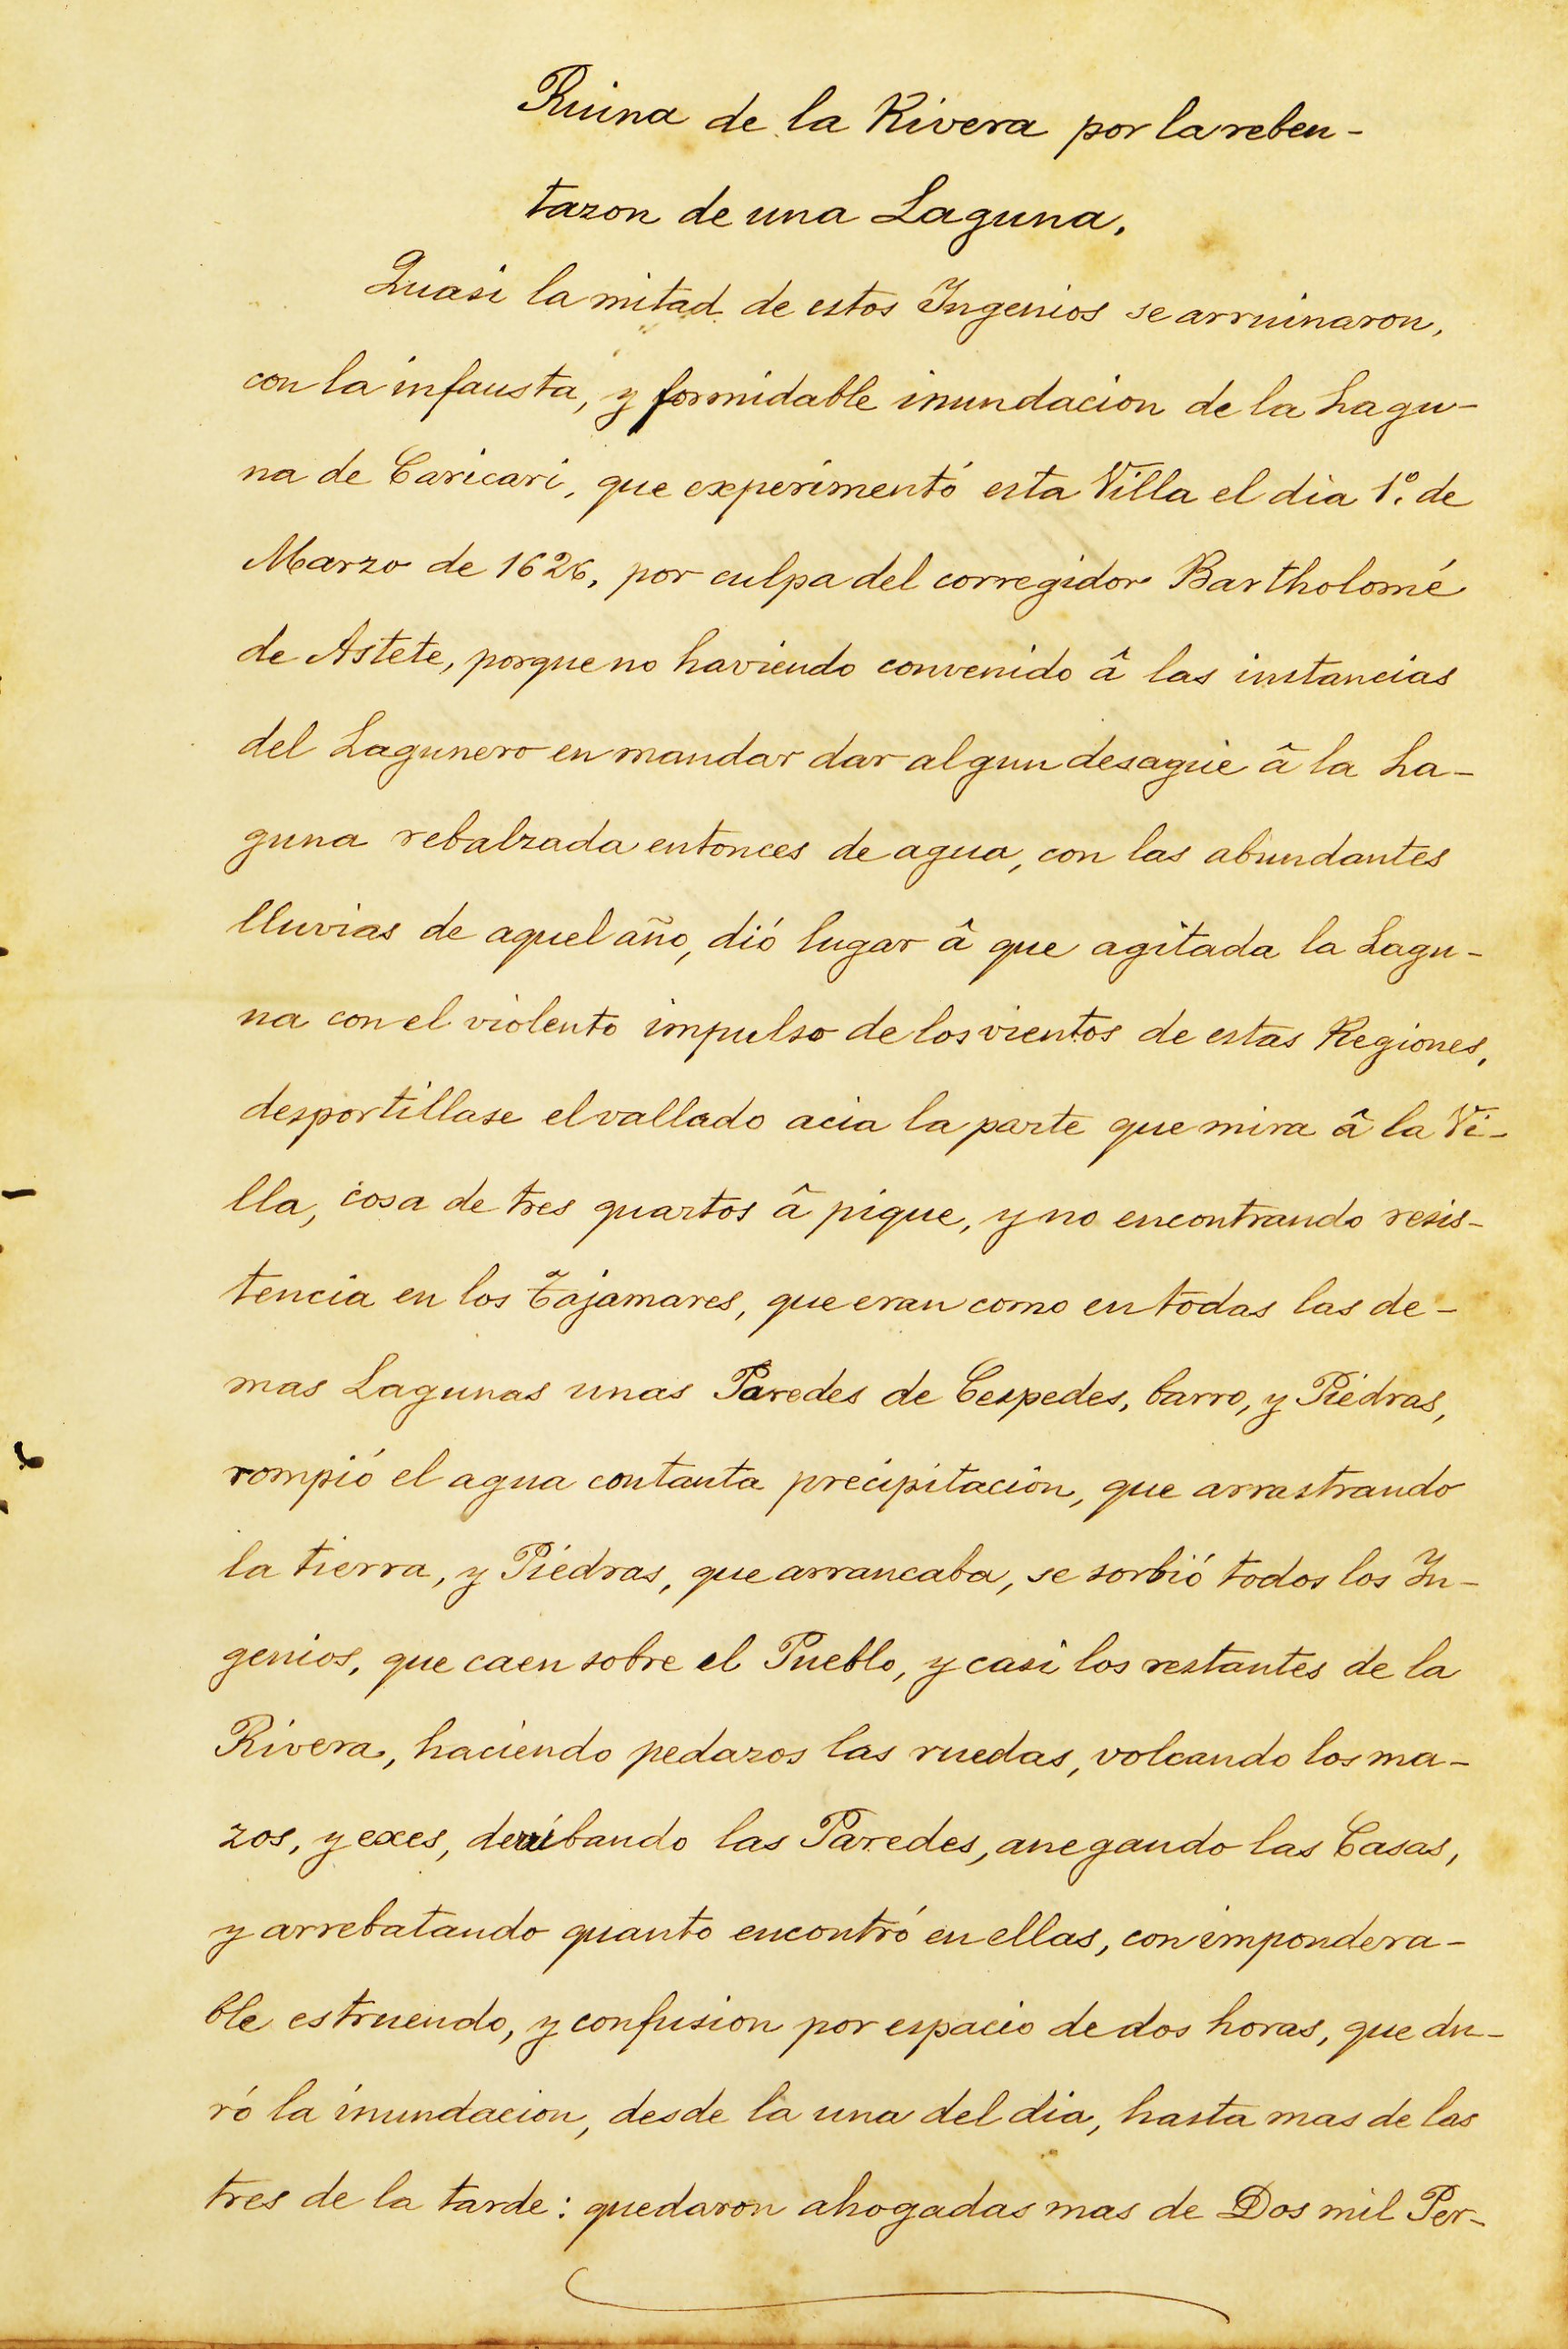 Ruina de la Rivera por la reben-
tazon de una Laguna.
Quasi la mitad de estos Ingenios se arruinaron,
con la infausta, y formidable inundacion de la Lagu-
na de Caricari, que experimentó esta Villa el dia 1º. de
Marzo de 1626, por culpa del corregidor Bartholomé
de Astete, porque no haviendo convenido â las instancias
del Lagunero en mandar dar algun desagüe â la La-
guna rebalzada entonces de agua, con las abundantes
lluvias de aquel año, dió lugar â que agitada la Lagu-
na con el violento impulso de los vientos de estas Regiones,
desportillase el vallado acia la parte que mira â la Vi-
lla, cosa de tres quartos â pique, y no encontrando resis-
tencia en los Tajamares, que eran como en todas las de-
mas Lagunas unas Paredes de Cespedes, barro, y Piedras,
rompió el agua con tanta precipitacion, que arrastrando
la tierra, y Piedras, que arrancaba, se sorbió todos los In-
genios, que caen sobre el Pueblo, y casi los restantes de la
Rivera, haciendo pedazos las ruedas, volcando los ma-
zos, y exes, derribando las Paredes, anegando las Casas,
y arrebatando quanto encontró en ellas, con impondera-
ble estruendo, y confusion por espacio de dos horas, que du-
ró la inundacion, desde la una del dia, hasta mas de las
tres de la tarde: quedaron ahogadas mas de Dos mil Per-